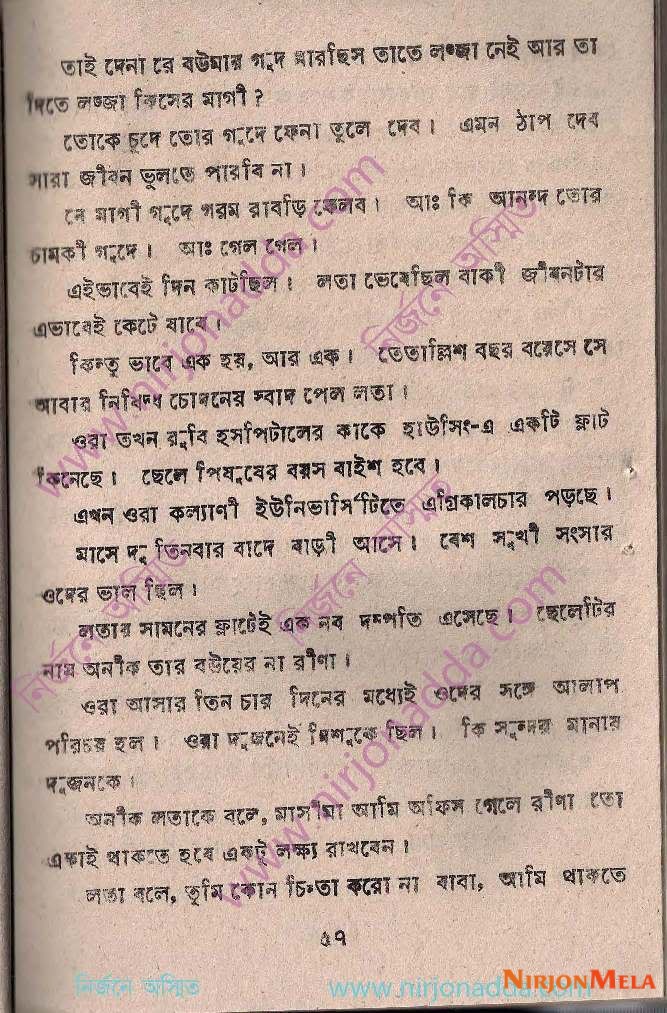 তাই দেনা রে বউমার গুদ মারছিস তাতে লজ্জা নেই আর তা
দিতে লজ্জা কিসের মাগী ?
তোকে চুদে তোর গুদে ফেনা তুলে দেব। এমন ঠাপ দেব
সারা জীবন ভুলতে পারবি না।
নে মাগী গুদে গরম রাবড়ি ফেলব। আঃ কি আনন্দ তোর
চামকী গুদে। আঃ গেল গেল।
এইভাবেই দিন কাটছিল। লতা ভেবেছিল বাকী জীবনটার
এভাবেই কেটে যাবে।
কিন্তু ভাবে এক হয়, আর এক। তেতাল্লিশ বছর বয়েসে সে
আবার নিষিদ্ধ চোদনের স্বাদ পেল লতা।
ওরা তখন রুবি হসপিটালের কাকে হাউসিং-এ একটি ফ্লাট
কিনেছে। ছেলে পিযুষের বয়স বাইশ হবে।
এখন ওরা কল্যাণী ইউনিভার্সিটিতে এগ্রিকালচার পড়ছে।
মাসে দু তিনবার বাদে বাড়ী আসে। বেশ সুখী সংসার
ওদের ভাল ছিল।
লতার সামনের ফ্লাটেই এক নব দম্পতি এসেছে। ছেলেটির
নাম অনীক তার বউয়ের না রীণা।
ওরা আসার তিন চার দিনের মধ্যেই ওদের সঙ্গে আলাপ
পরিচয় হল। ওরা দুজনেই মিশুকে ছিল। কি সুন্দর মানায়
দুজনকে।
অনীক লতাকে বলে, মাসীমা আমি অফিস গেলে রীণা তো
একাই থাকতে হবে একটু লক্ষ্য রাখবেন।
লতা বলে, তুমি কোন চিন্তা করো না বাবা, আমি থাকতে
৫৭
নির্জনে অস্মিত www.nirjonadda.com
NIRJONMELA
www.nirjonadda.com
নির্জনে অস্মিত
নির্জনে অস্মিত
নির্জনে অস্মিত
www.nirjonadda.com